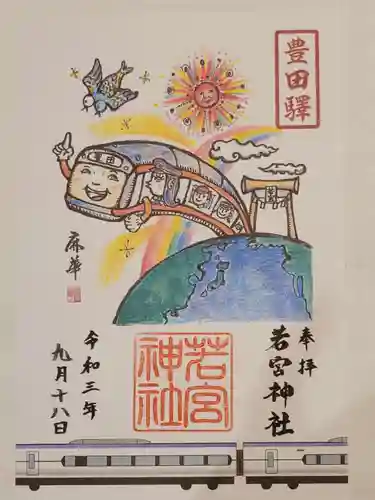 豊田驛
豊田
奉拝
若宮神社
若宮
神社
麻華
令和三年
九月十八日